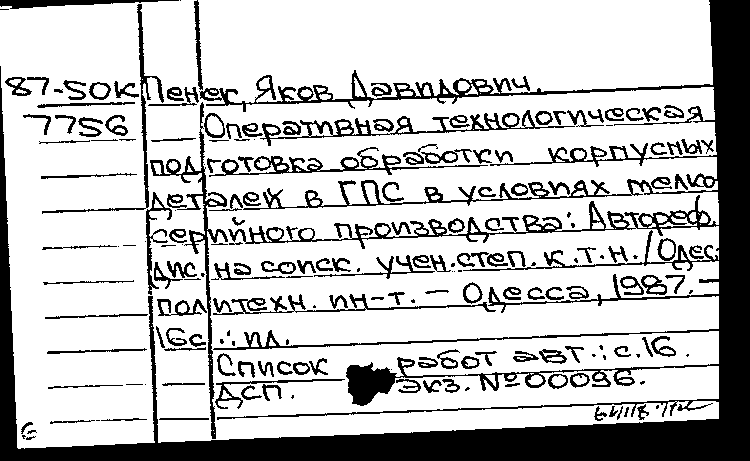 87-50К Пенек, Яков Давидович.
7756 Оперативная технологическая
подготовка обработки корпусных
деталей в ГПС в условиях мелко
серийного производства: Автореф.
дис. на соиск. учен. степ. к.т.н. / Одес.
политехн. ин-т. — Одесса, 1987. —
16с .: ил.
Список работ авт.: с.16.
ДСП. экз. №00096.
6